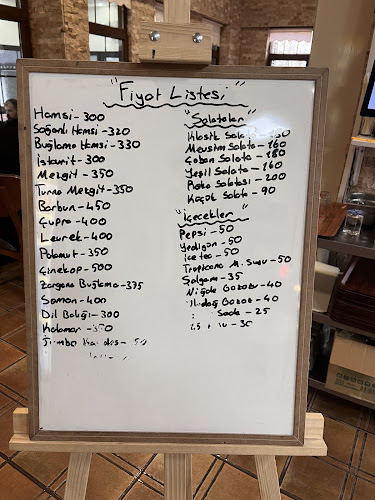 "Fiyat Listesi"
Hamsi - 300
Soğanlı Hamsi - 320
Buğlama Hamsi - 330
İstavrit - 300
Mezgit - 350
Turna Mezgit - 350
Barbun - 450
Çupra - 400
Levrek - 400
Palamut - 350
Çinekop - 500
Zargana Buğlama - 375
Somon - 400
Dil Balığı - 300
Kalamar - 350
Jumbo
"Salatalar"
Klasik Salata
Mevsim Salata - 160
Çoban Salata - 180
Yeşil Salata - 160
Roka Salatası - 200
Kaşık Salata - 90
"İçecekler"
Pepsi - 50
Yedigün - 50
ice tea - 50
Tropicana M. Suyu - 50
Şalgam - 35
Niğde Gazozu - 40
Uludağ Gazoz - 40
Soda - 25
- 30